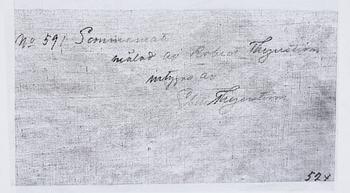 No 591 Sommarnatt
målad av Robert Thegerström
intygas av
Thegerström
524